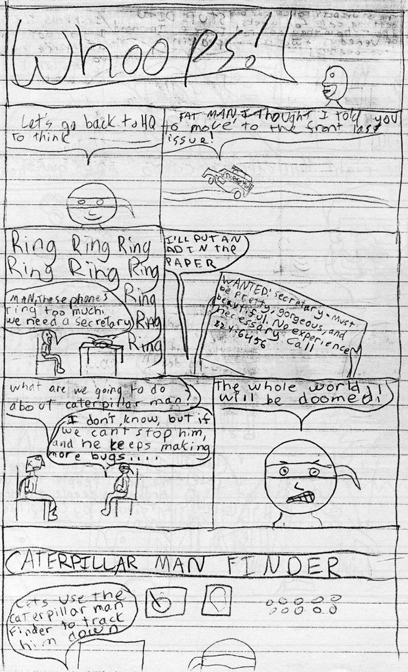 Whoops!
Let's go back to HQ
to think
FAT MAN I thought I told you
to move to the front last
issue!
Ring Ring Ring
Ring Ring Ring
Ring
Ring
Ring
MAN, these phones
ring too much,
we need a secretary
I'LL PUT AN
AD IN the
PAPER
WANTED: secretary. Must
be pretty, gorgeous, and
beautiful. No experience
necessary. Call
what are we going to do
about caterpillar man?
I don't know, but if
we can't stop him,
and he keeps making
more bugs....
The whole world
will be doomed!
CATERPILLAR MAN FINDER
Lets use the
caterpillar man
Finder to track
him down